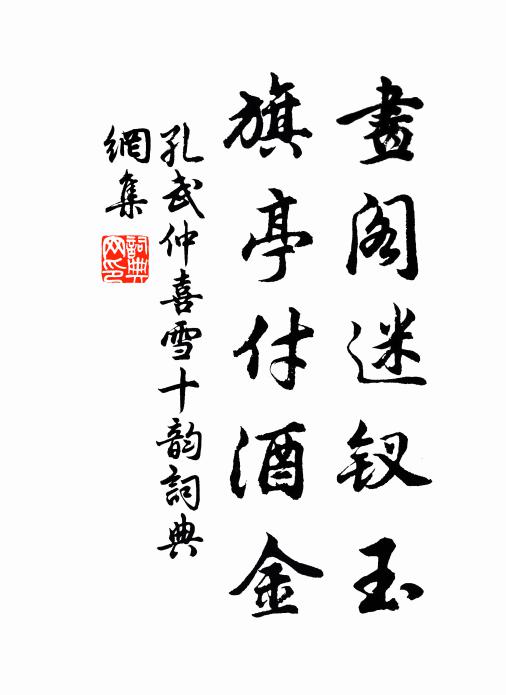 畫阁迷钗玉
旗亭付酒金
孔武仲喜雪十韵詞典
網集
詞典网印